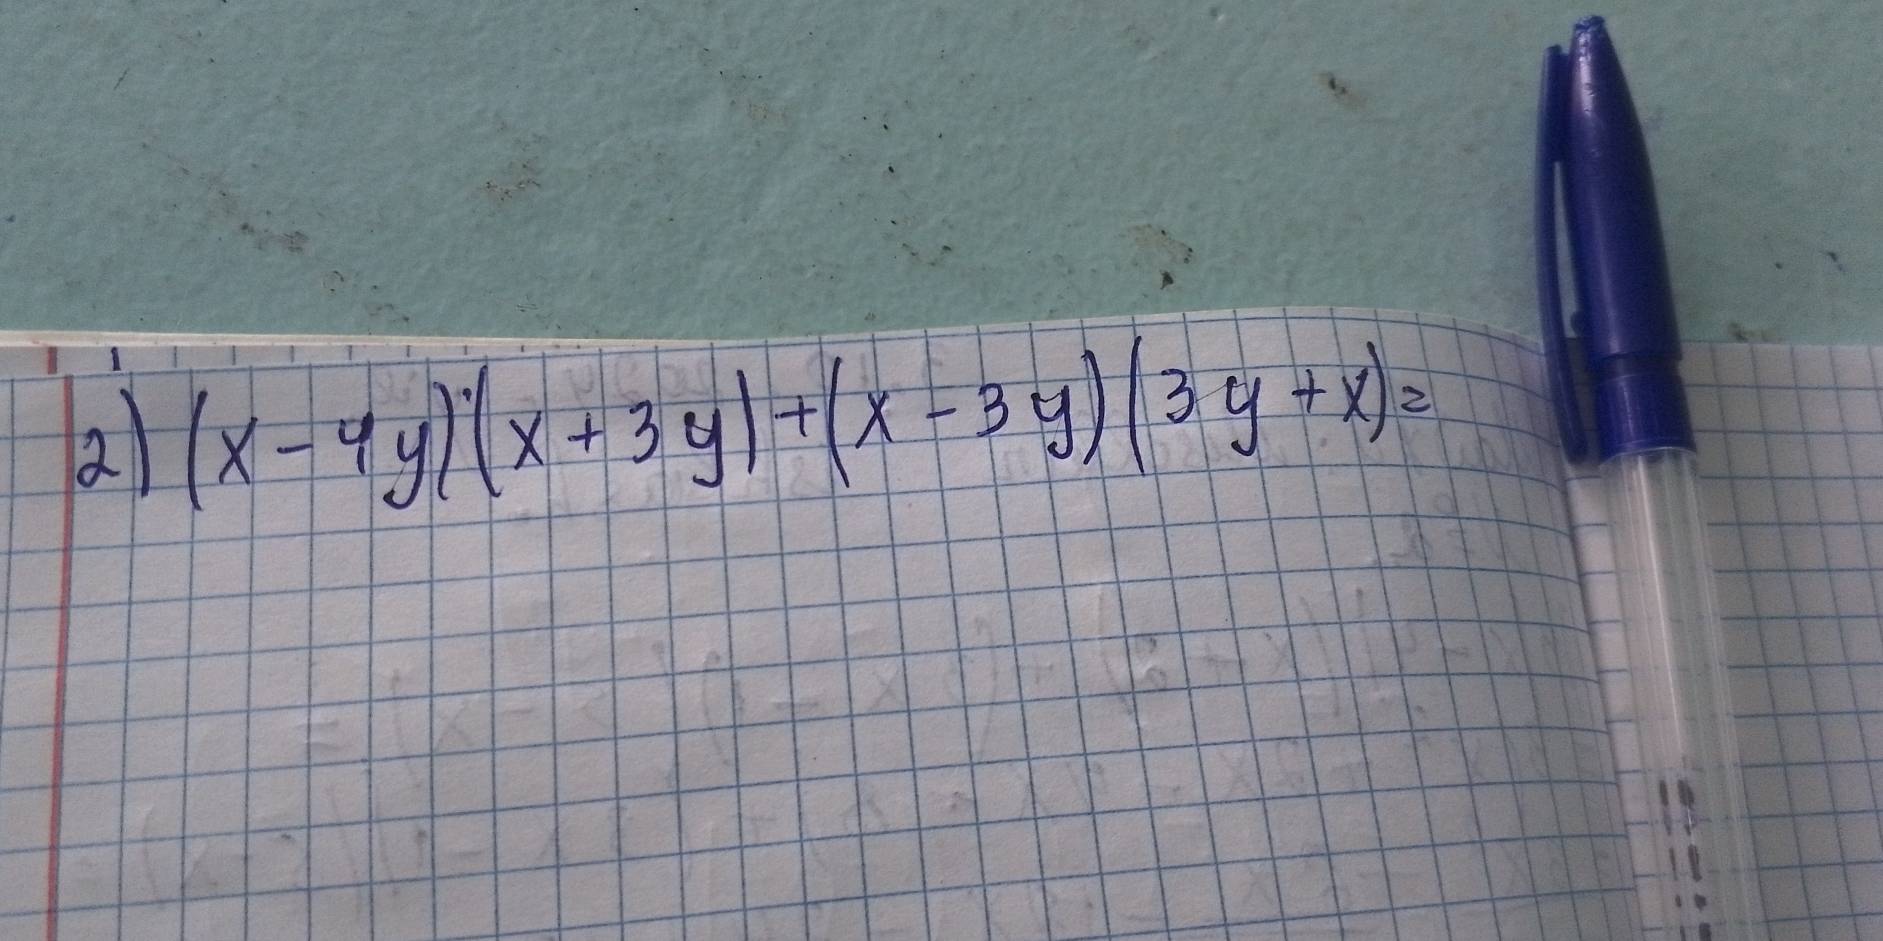 2) (x - 4y)·(x + 3y) + (x - 3y)(3y + x) =